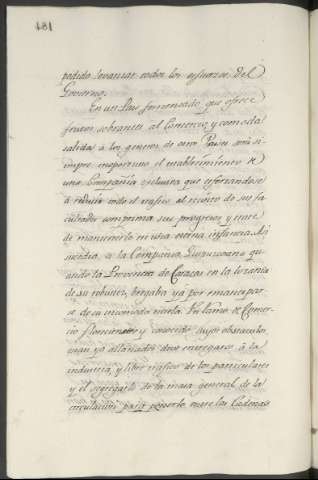 181
podido levantar todos los esfuerzos del
Govierno.
En un Pais fomentado, que ofrece
frutos sobrantes al Comercio, y comoda
salida á los generos de otro Pais será si-
empre inoportuno el establecimiento de
una Compañia exclusiva que esforzandose
á reducir todo el trafico al recinto de sus fa-
cultades comprima sus progresos y trate
de mantenerlo en una eterna infancia. Asi
sucedió, a la Compañia Guipuzcoana qu-
ando la Provincia de Caracas en la lozania
de su robustez, bregaba ya por emanciparse
de su incomoda tutela. Un ramo de Comer-
cio floreciente y conocido cuyos obstaculos
estan ya allanados deve entregarse á la
industria, y libre trafico de los particulares
y el segregarlo de la masa general de la
circulacion para ponerlo entre las Cadenas